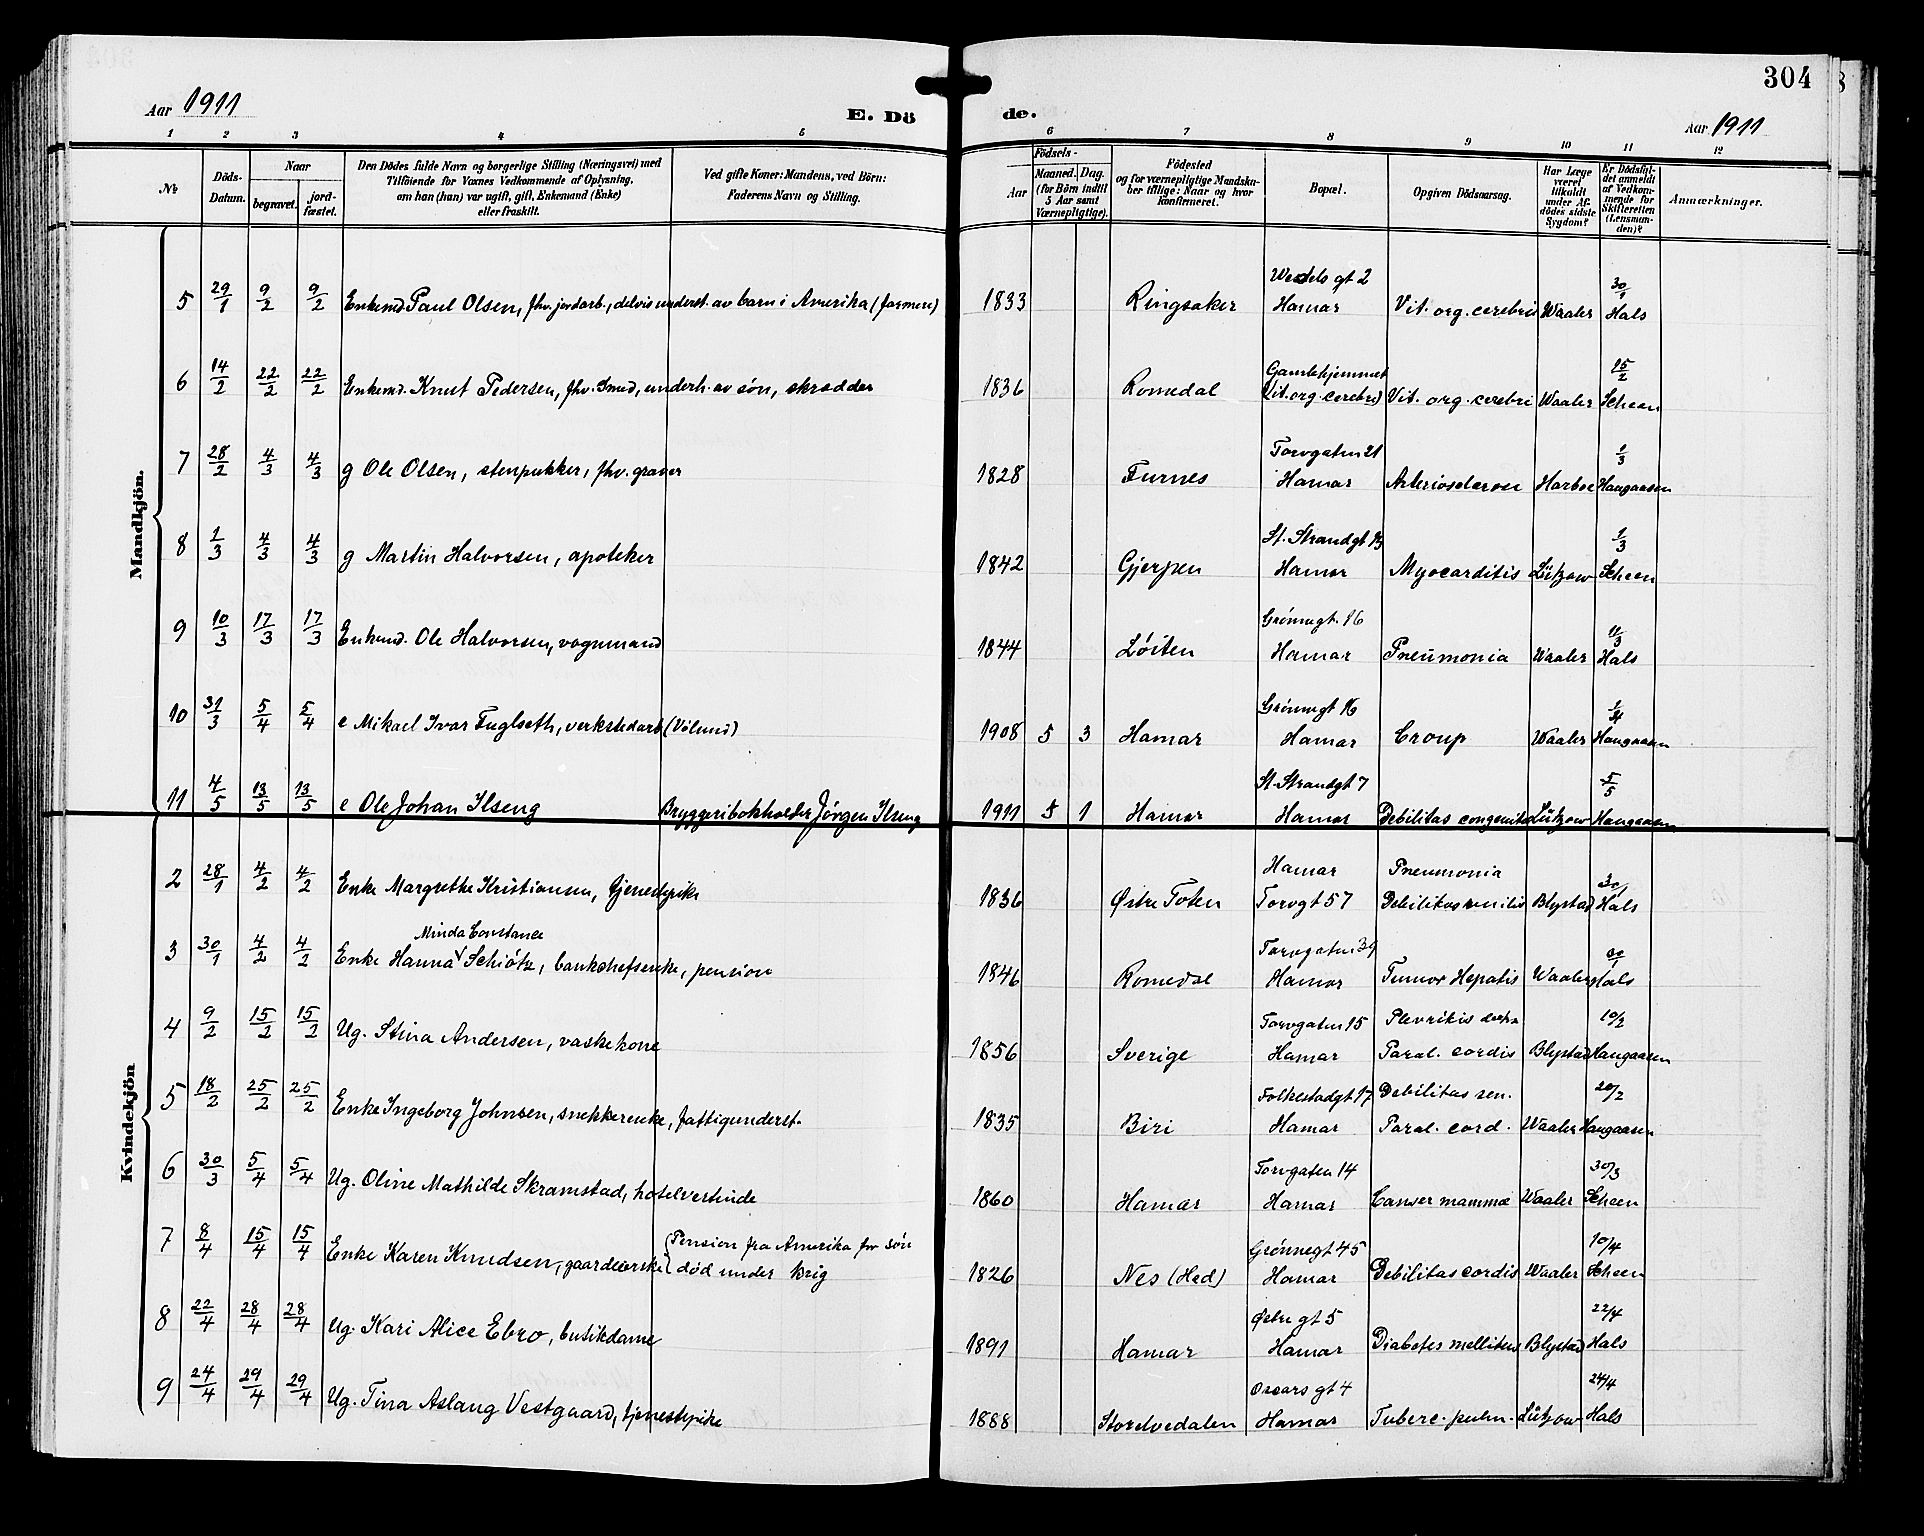 304
Aar 1911
E. Dö
de.
Aar 1911
1 2 3 4 5 6 7 8 9 10 11 12
No
Döds-Datum.
Naar
begravet.
jord-fæstet.
Den Dödes fulde Navn og borgerlige Stilling (Næringsvei) med
Tilföiende for Voxnes Vedkommende af Oplysning,
om han (hun) var ugift, gift, Enkemand (Enke)
eller fraskilt.
Ved gifte Koner: Mandens, ved Börn:
Faderens Navn og Stilling.
Födsels-
Aar
Maaned. Dag.
(for Börn indtil
5 Aar samt
Værnepligtige).
Födested
og for værnepligtige Mandska-
ber tillige: Naar og hvor
konfirmeret.
Bopæl.
Opgiven Dödsaarsag.
Har Læge
været
tilkaldt
under Af-
dödes sidste
Sygdom?
Er Dödsfal-
det anmeldt
af Vedkom-
mende for
Skifteretten
(Lensman-
den)?
Anmærkninger.
Mandkjön.
5 29/1 9/2 9/2 Enkemd Paul Olsen, fhv. jordarb., delvis underst. av barn i Amerika (farmere) 1833 Ringsaker Wedels gt 2 Hamar Vit. org. cerebri Waaler 30/1 Hals
6 14/2 22/2 22/2 Enkemd. Knut Pedersen, fhv. Smed, underh. av søn, skrædder 1836 Romedal Gamlehjemmet (Vit. org. cerebri) Vit. org. cerebri Waaler 15/2 Scheen
7 28/2 4/3 4/3 g Ole Olsen, stenpukker, fhv. graver 1828 Furnes Torvgaten 21 Hamar Arteriosclerose Harboe 1/3 Haugaasen
8 1/3 4/3 4/3 g Martin Halvorsen, apoteker 1842 Gjerpen St. Strandgt 13 Hamar Myocarditis Lützow 1/3 Scheen
9 10/3 17/3 17/3 Enkemd. Ole Halvorsen, vognmand 1844 Løiten Grønnegt. 16 Hamar Pneumonia Waaler 11/3 Hals
10 31/3 5/4 5/4 e Mikael Ivar Fuglseth, verkstedarb (Vølund) 1908 5 3 Hamar Grønnegt 16 Hamar Croup Waaler 1/4 Haugaasen
11 4/5 13/5 13/5 e Ole Johan Ilseng Bryggeribokholder Jörgen Ilseng 1911 5 1 Hamar St. Strandgt 7 Hamar Debilitas congenita Lützow 5/5 Haugaasen
Kvindekjön
2 28/1 4/2 4/2 Enke Margrethe Kristiansen, tjenestepike 1836 Østre Toten Hamar Torvgt 57 Pneumonia Debilitas senilis Blystad 30/1 Hals
3 30/1 4/2 4/2 Enke Hanna Minda Constance Schiötz, bankchefsenke, pension 1846 Romedal Torvgaten 39 Hamar Tumor Hepatis Waaler 30/1 Hals
4 9/2 15/2 15/2 Ug. Stina Andersen, vaskekone 1856 Sverige Torvgaten 15 Hamar Plevritis dextra Paral. cordis Blystad 10/2 Haugaasen
5 18/2 25/2 25/2 Enke Ingeborg Johnsen, snekkerenke, fattigunderst. 1835 Biri Folkestadgt 17 Hamar Debilitas sen. Paral. cord. Waaler 20/2 Haugaasen
6 30/3 5/4 5/4 Ug. Oline Mathilde Skramstad, hotelvertinde 1860 Hamar Torvgaten 14 Hamar Canser mammæ Waaler 30/3 Scheen
7 8/4 15/4 15/4 Enke Karen Knudsen, gaardeierske (Pension fra Amerika for søn død under krig 1826 Nes (Hed) Grønnegt 45 Hamar Debilitas cordis Waaler 10/4 Scheen
8 22/4 28/4 28/4 Ug. Kari Alice Ebro, butikdame 1891 Hamar Østre gt 5 Hamar Diabetes mellitus Blystad 22/4 Hals
9 24/4 29/4 29/4 Ug. Tina Aslaug Vestgaard, tjenestepike 1888 Storelvedalen Oscars gt 4 Hamar Tuberc. pulm. Lützow 24/4 Hals